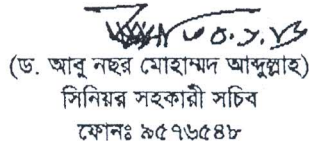 (ড. আবু নছর মোহাম্মদ আব্দুল্লাহ)
সিনিয়র সহকারী সচিব
ফোনঃ ৯৫৭৬৫৪৮